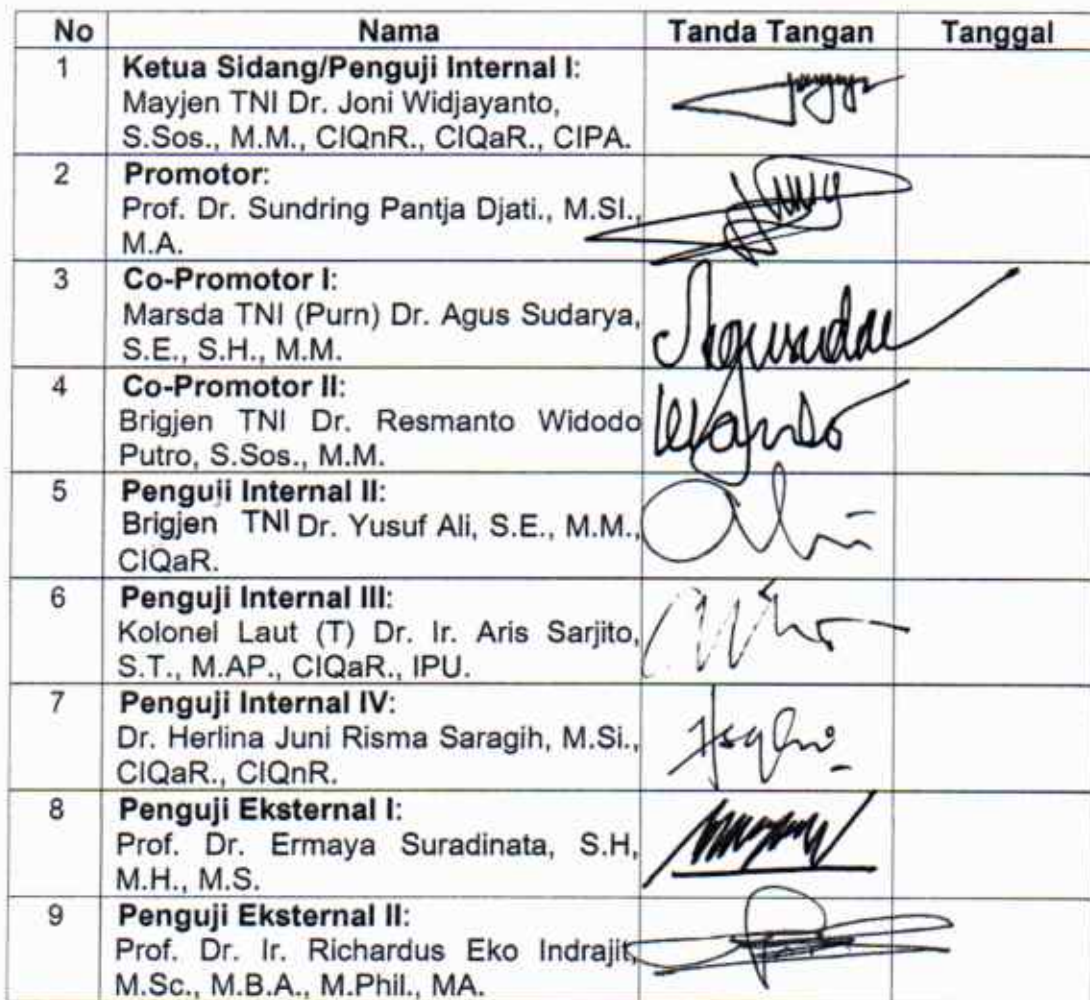 No Nama Tanda Tangan Tanggal
1 Ketua Sidang/Penguji Internal I:
Mayjen TNI Dr. Joni Widjayanto,
S.Sos., M.M., CIQnR., CIQaR., CIPA.
2 Promotor:
Prof. Dr. Sundring Pantja Djati., M.SI.,
M.A.
3 Co-Promotor I:
Marsda TNI (Purn) Dr. Agus Sudarya,
S.E., S.H., M.M.
4 Co-Promotor II:
Brigjen TNI Dr. Resmanto Widodo
Putro, S.Sos., M.M.
5 Penguji Internal II:
Brigjen TNI Dr. Yusuf Ali, S.E., M.M.,
CIQaR.
6 Penguji Internal III:
Kolonel Laut (T) Dr. Ir. Aris Sarjito,
S.T., M.AP., CIQaR., IPU.
7 Penguji Internal IV:
Dr. Herlina Juni Risma Saragih, M.Si.,
CIQaR., CIQnR.
8 Penguji Eksternal I:
Prof. Dr. Ermaya Suradinata, S.H,
M.H., M.S.
9 Penguji Eksternal II:
Prof. Dr. Ir. Richardus Eko Indrajit,
M.Sc., M.B.A., M.Phil., MA.